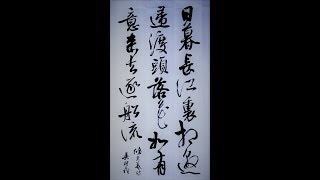 日暮長江裏相邀
歸渡頭落花如有
意來去逐船流